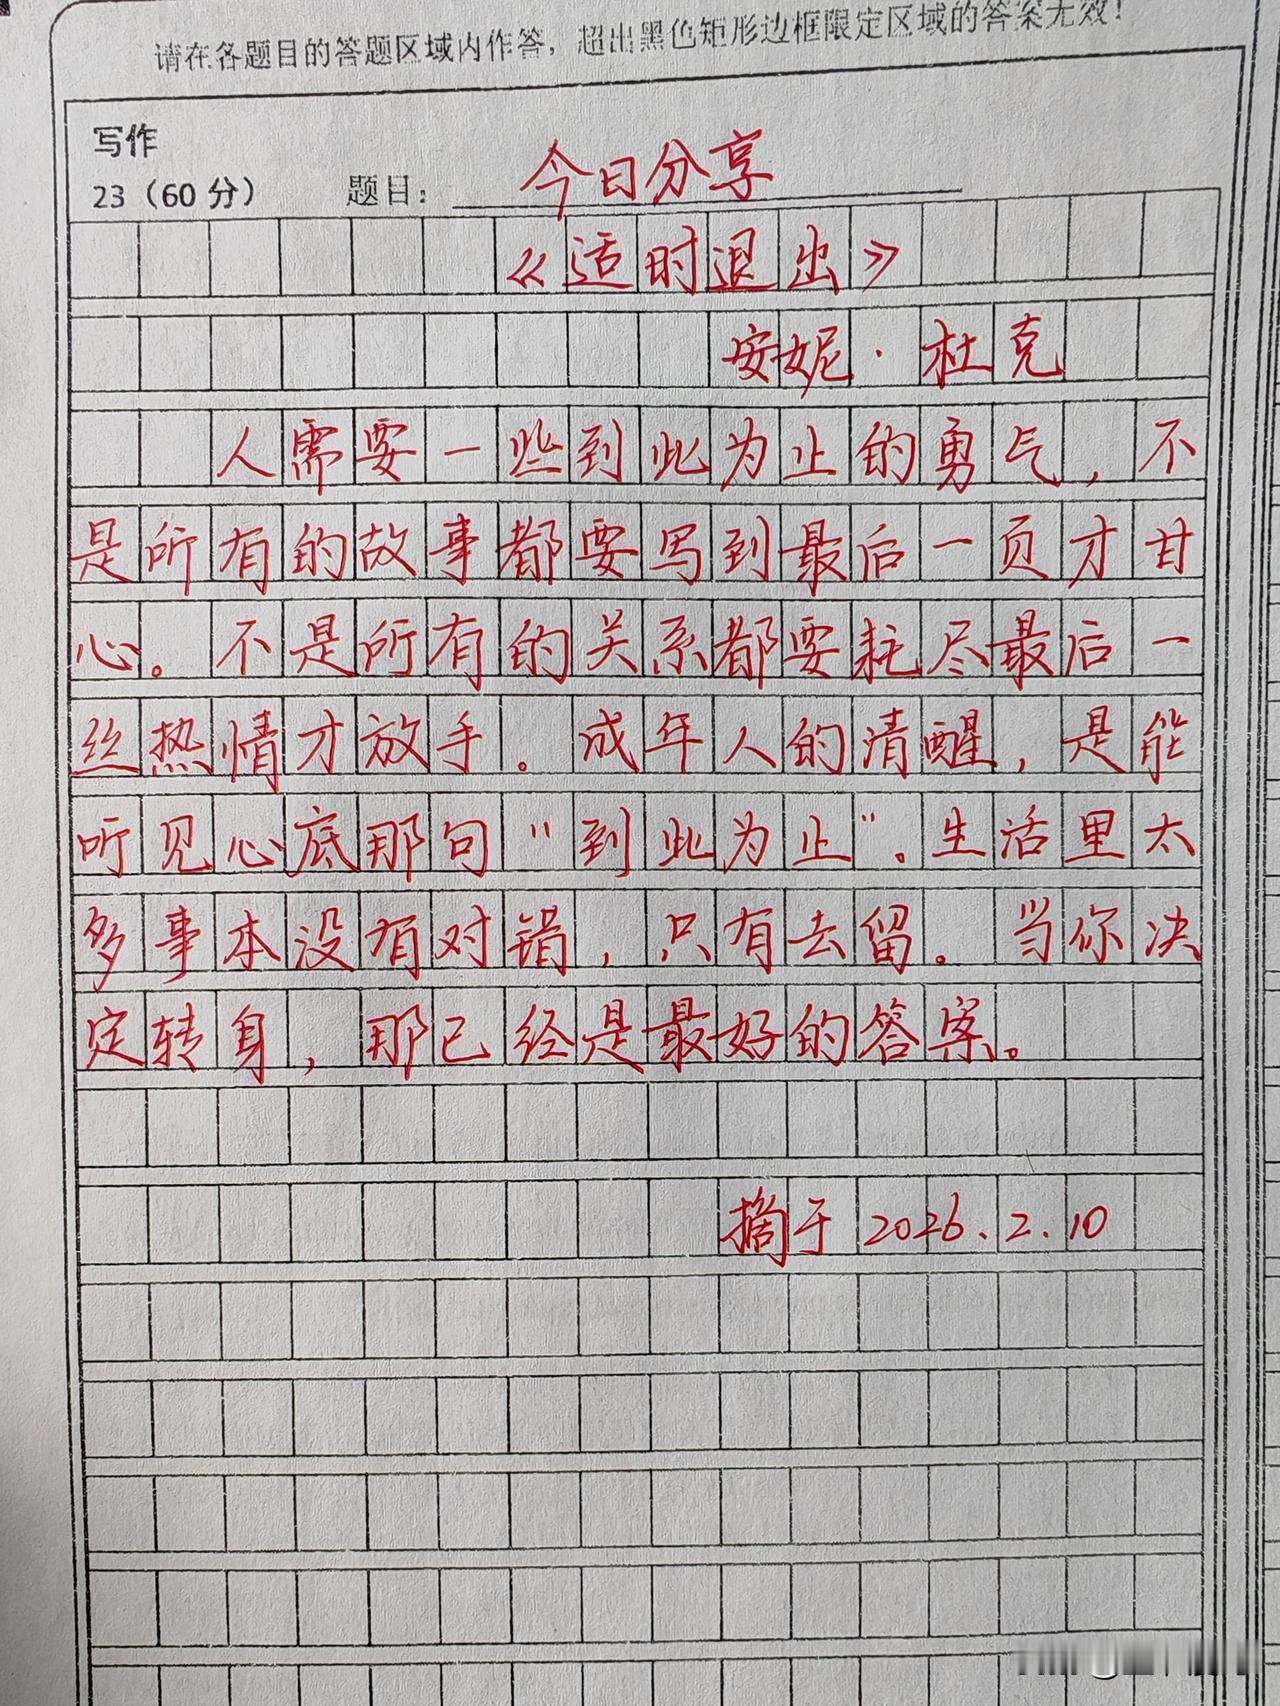 请在各题目的答题区域内作答，超出黑色矩形边框限定区域的答案无效！
写作
23（60分） 题目：今日分享
《适时退出》
安妮·杜克
人需要一些到此为止的勇气，不
是所有的故事都要写到最后一页才甘
心。不是所有的关系都要耗尽最后一
丝热情才放手。成年人的清醒，是能
听见心底那句"到此为止"。生活里太
多事本没有对错，只有去留。当你决
定转身，那已经是最好的答案。
摘于2026.2.10